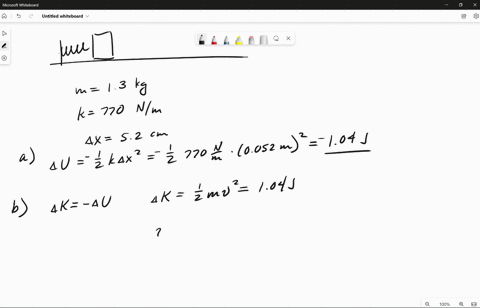 Microsoft Whiteboard
Untitled whiteboard
m = 1.3 kg
k = 770 N/m
Δx = 5.2 cm
a) ΔU = -1/2 k Δx² = -1/2 770 N/m · (0.052 m)² = -1.04 J
b) ΔK = -ΔU ΔK = 1/2 mv² = 1.04 J
100%